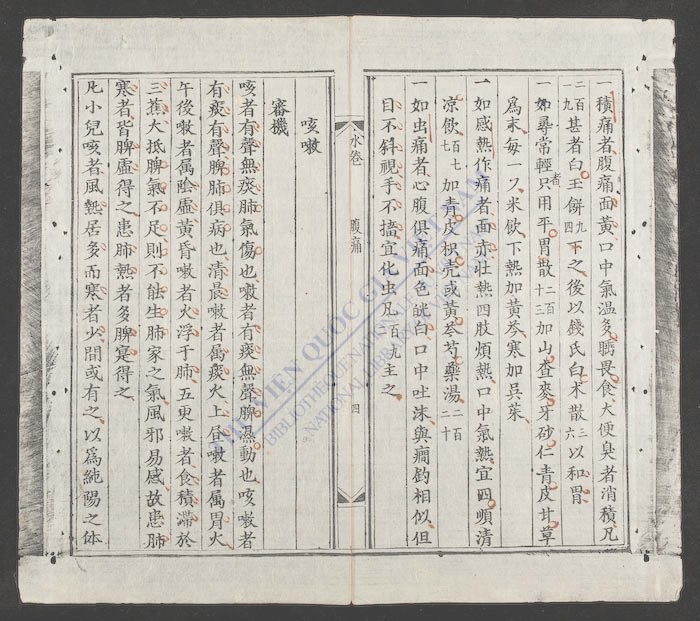 一積痛者腹痛面黃口中氣温多䏿畏食大便臭者消積凡
二百一九甚者白玉餅九四下之後以錢氏白术散三六以和胃
一如尋常輕者只用平胃散二百十三加山查麥牙砂仁青皮甘草
爲末每一刄米飲下熱加黃芩寒加吳茱
一如感熱作痛者面赤壯熱四肢煩熱口中氣熱宜四順清
凉飲百七七加青皮枳壳或黃芩芍藥湯二百二十
一如虫痛者心腹俱痛面色㿠白口中吐沫與癎釣相似但
目不斜視手不搐宜化虫凡百九二主之
水卷 腹痛 四
咳嗽
審機
咳者有聲無痰肺氣傷也嗽者有痰無聲脾濕動也咳嗽者
有痰有聲脾肺俱病也清晨嗽者属痰火上昼嗽者属胃火
午後嗽者属陰虛黃昏嗽者火浮于肺五更嗽者食積滯於
三蕉大抵脾氣不足則不能生肺家之氣風邪易感故患肺
寒者皆脾虛得之患肺熱者多脾寔得之
凡小兒咳者風熱居多而寒者少間或有之以爲純陽之体
THƯ VIỆN QUỐC GIA VIỆT NAM